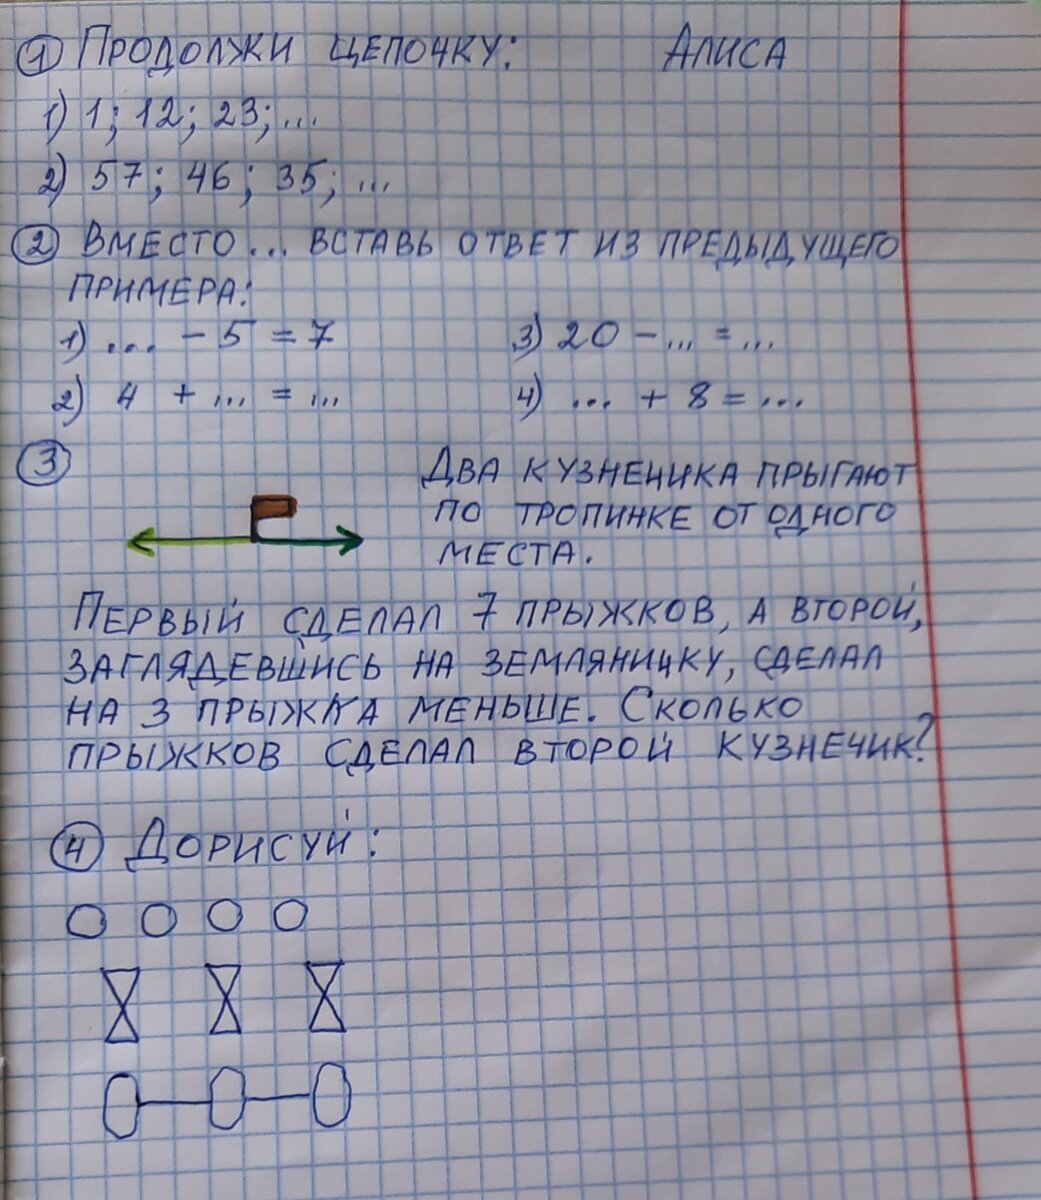 ① ПРОДОЛЖИ ЦЕПОЧКУ: АЛИСА
1) 1; 12; 23; ...
2) 57; 46; 35; ...
② ВМЕСТО ... ВСТАВЬ ОТВЕТ ИЗ ПРЕДЫДУЩЕГО
ПРИМЕРА:
1) ... - 5 = 7 3) 20 - ... = ...
2) 4 + ... = ... 4) ... + 8 = ...
③ ДВА КУЗНЕЦИКА ПРЫГАЮТ
ПО ТРОПИНКЕ ОТ ОДНОГО
МЕСТА.
ПЕРВЫЙ СДЕЛАЛ 7 ПРЫЖКОВ, А ВТОРОЙ,
ЗАГЛЯДЕВШИСЬ НА ЗЕМЛЯНИЦКУ, СДЕЛАЛ
НА 3 ПРЫЖКА МЕНЬШЕ. СКОЛЬКО
ПРЫЖКОВ СДЕЛАЛ ВТОРОЙ КУЗНЕЧИК?
④ ДОРИСУЙ: